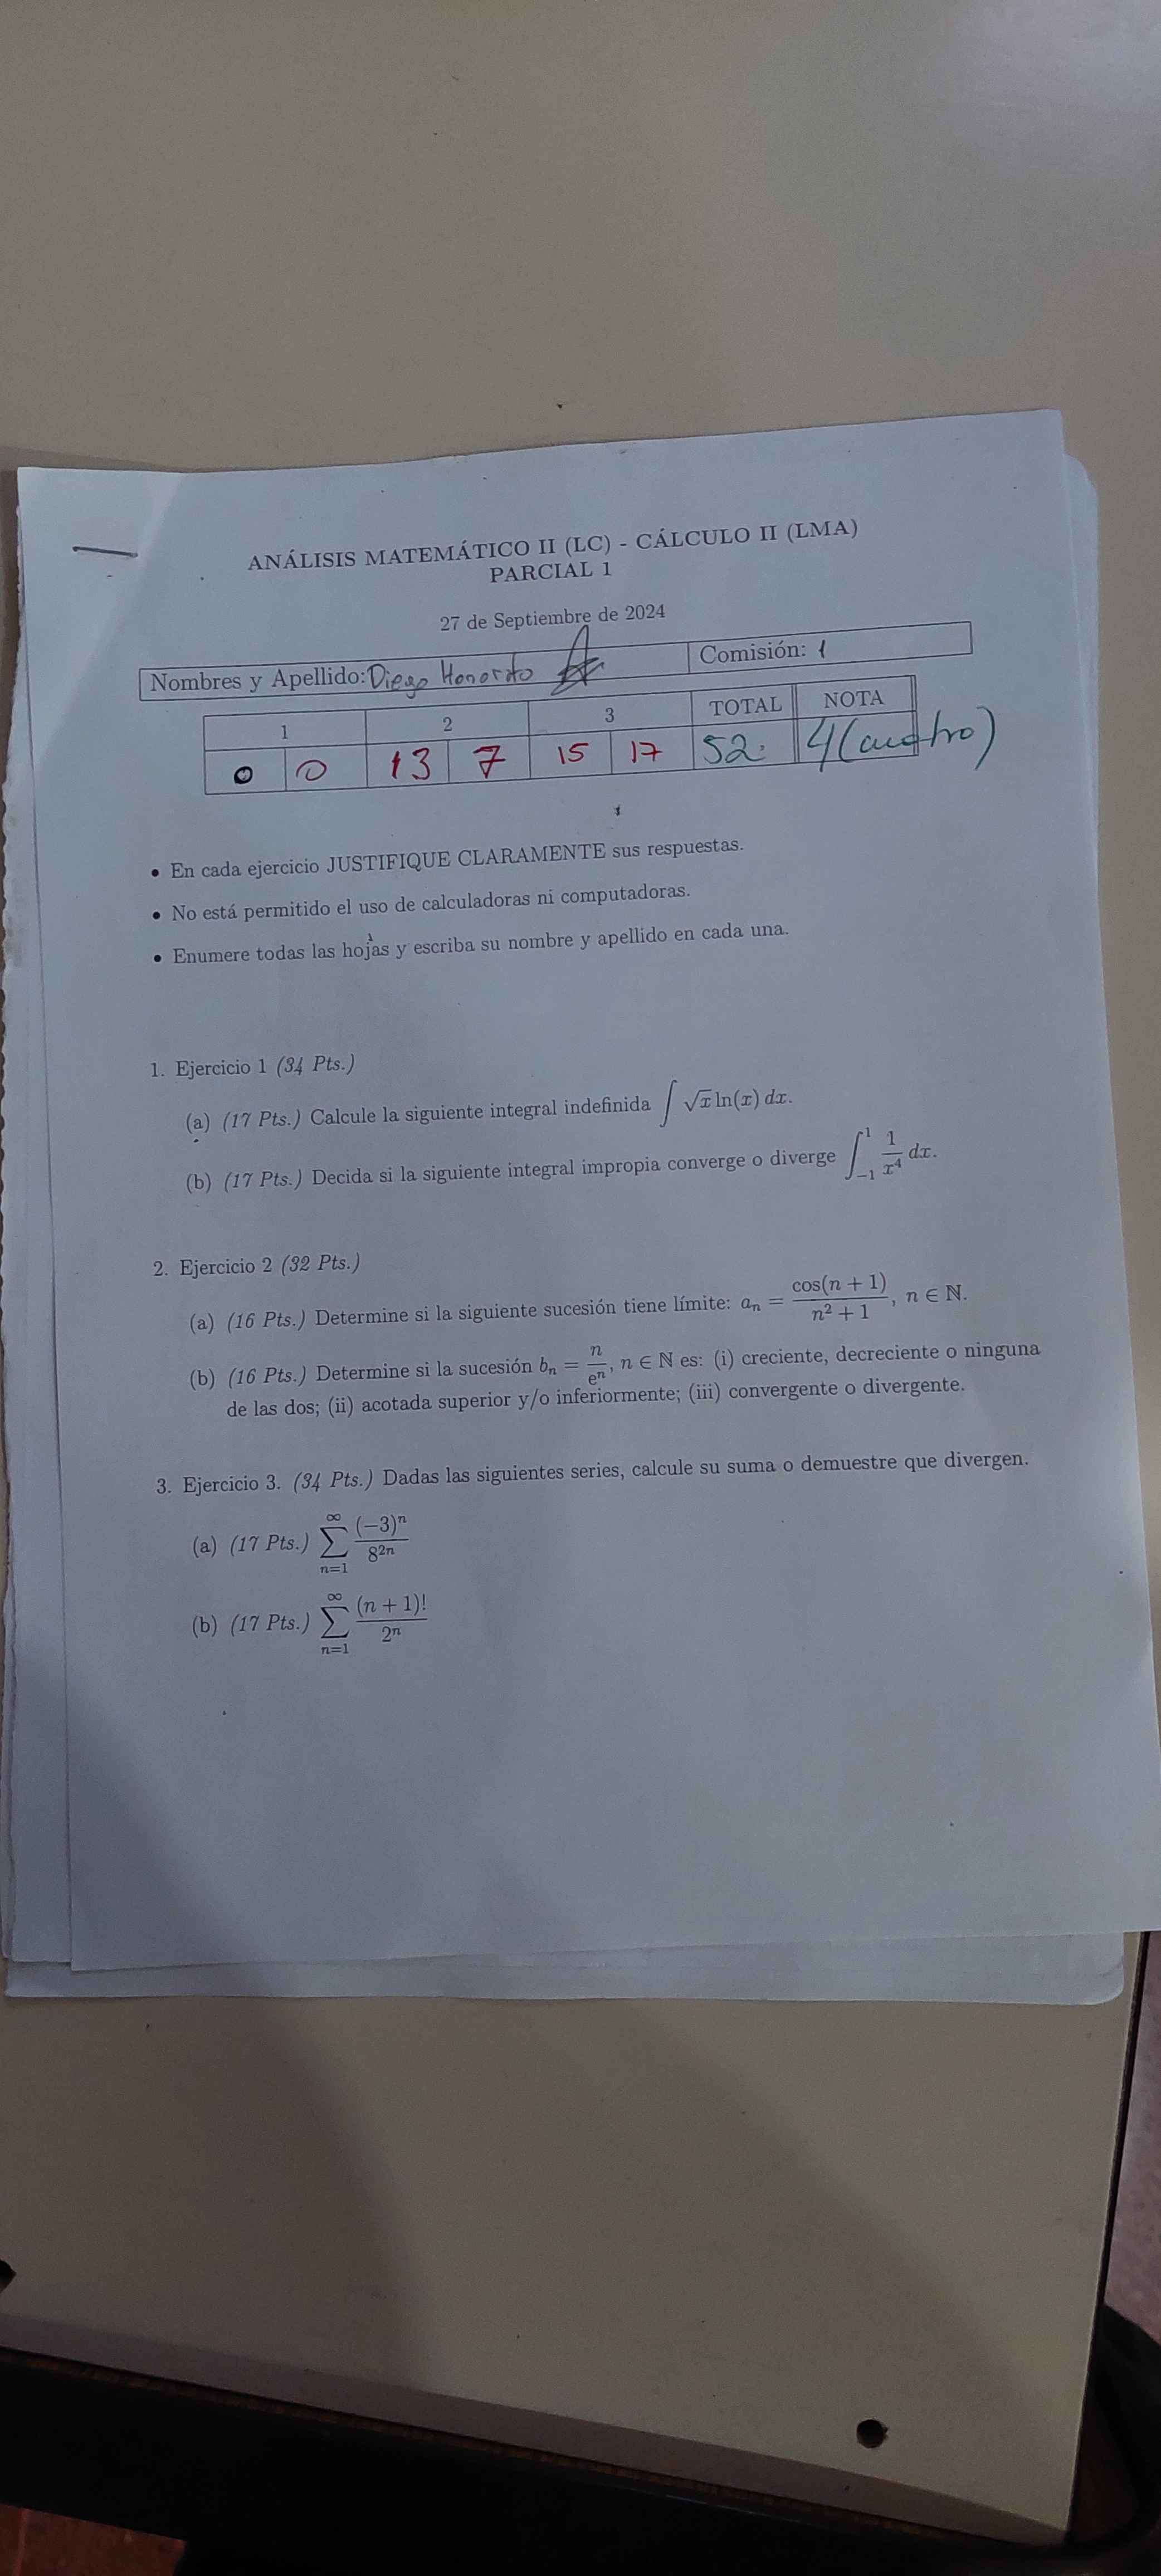 ANÁLISIS MATEMÁTICO II (LC) - CÁLCULO II (LMA)
PARCIAL 1
27 de Septiembre de 2024
Nombres y Apellido: Diego Honorato Comisión: 1
1 2 3 TOTAL NOTA
0 0 13 7 15 17 52 4 (cuatro)
• En cada ejercicio JUSTIFIQUE CLARAMENTE sus respuestas.
• No está permitido el uso de calculadoras ni computadoras.
• Enumere todas las hojas y escriba su nombre y apellido en cada una.
1. Ejercicio 1 (34 Pts.)
(a) (17 Pts.) Calcule la siguiente integral indefinida ∫ √x ln(x) dx.
(b) (17 Pts.) Decida si la siguiente integral impropia converge o diverge ∫_{-1}^{1} 1/x⁴ dx.
2. Ejercicio 2 (32 Pts.)
(a) (16 Pts.) Determine si la siguiente sucesión tiene límite: aₙ = cos(n + 1)/(n² + 1), n ∈ ℕ.
(b) (16 Pts.) Determine si la sucesión bₙ = n/eⁿ, n ∈ ℕ es: (i) creciente, decreciente o ninguna
de las dos; (ii) acotada superior y/o inferiormente; (iii) convergente o divergente.
3. Ejercicio 3. (34 Pts.) Dadas las siguientes series, calcule su suma o demuestre que divergen.
(a) (17 Pts.) ∑_{n=1}^{∞} (-3)ⁿ/8²ⁿ
(b) (17 Pts.) ∑_{n=1}^{∞} (n + 1)!/2ⁿ